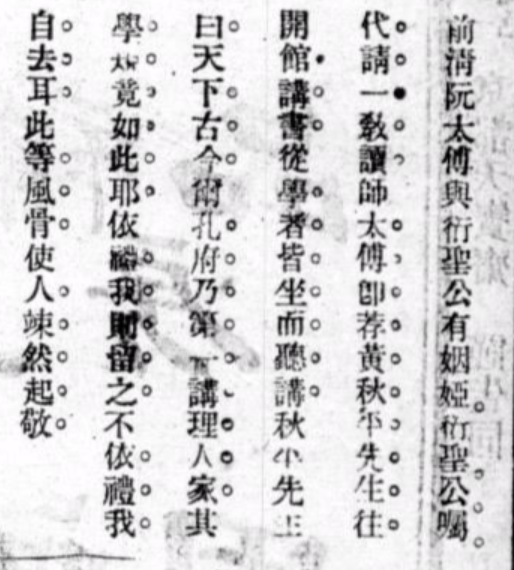 前清阮太傅與衍聖公有姻婭衍聖公囑
代請一敎讀師太傅卽荐黃秋平先生往
開館講書從學者皆坐而聽講秋平先生
曰天下古今爾孔府乃第一講理人家其
學規竟如此耶依禮我則留之不依禮我
自去耳此等風骨使人竦然起敬